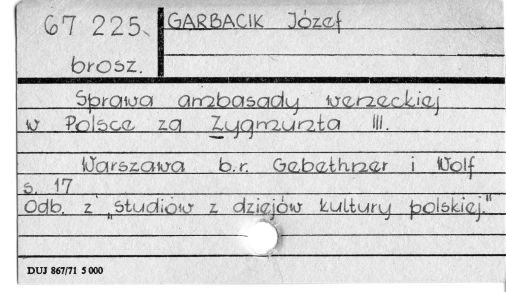 67 225.
GARBACIK Józef
brosz.
Sprawa ambasady weneckiej
w Polsce za Zygmunta III.
Warszawa b.r. Gebethner i Wolf
s. 17
Odb. z "studiów z dziejów kultury polskiej."
DUJ 867/71 5 000